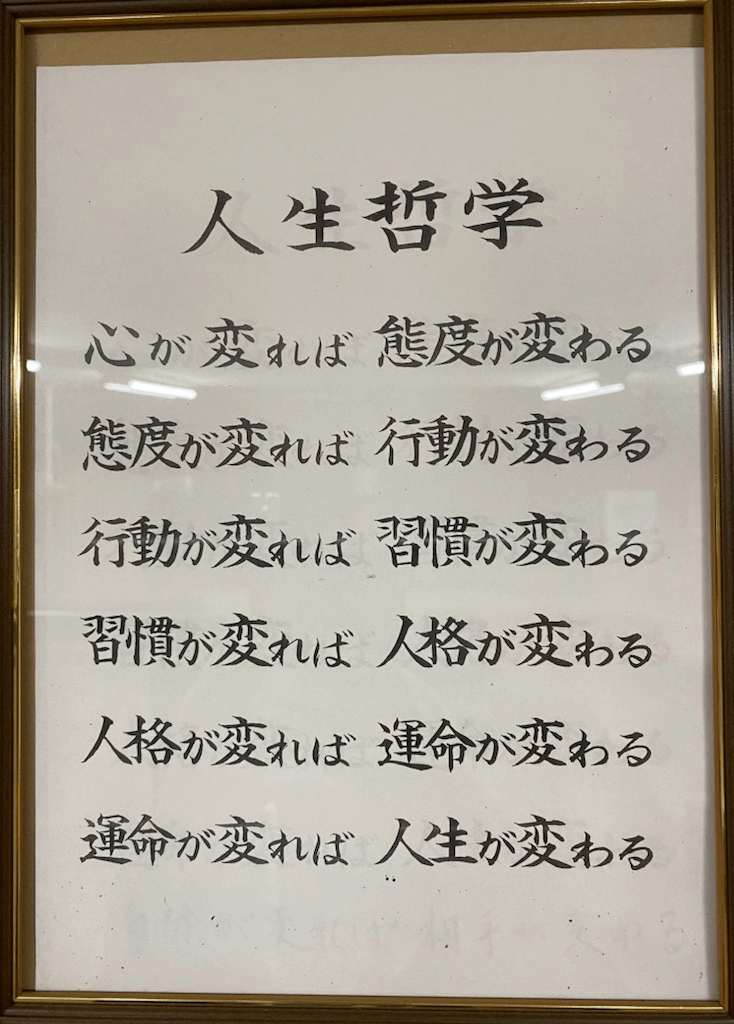 人生哲学
心が変れば 態度が変わる
態度が変れば 行動が変わる
行動が変れば 習慣が変わる
習慣が変れば 人格が変わる
人格が変れば 運命が変わる
運命が変れば 人生が変わる